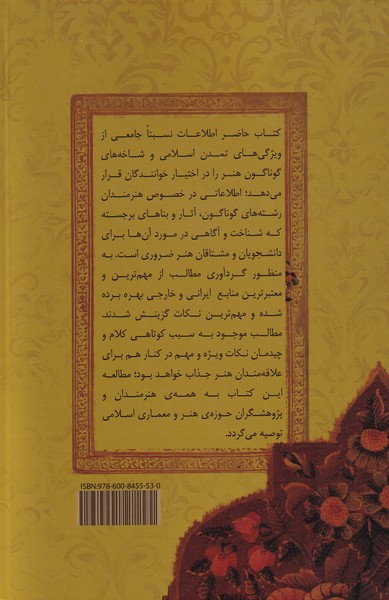 کتاب حاضر اطلاعات نسبتاً جامعی از
ویژگی‌های تمدن اسلامی و شاخه‌های
گوناگون هنر را در اختیار خوانندگان قرار
می‌دهد؛ اطلاعاتی در خصوص هنرمندان
رشته‌های گوناگون، آثار و بناهای برجسته
که شناخت و آگاهی در مورد آن‌ها برای
دانشجویان و مشتاقان هنر ضروری است. به
منظور گردآوری مطالب از مهم‌ترین و
معتبرترین منابع ایرانی و خارجی بهره برده
شده و مهم‌ترین نکات گزینش شدند.
مطالب موجود به سبب کوتاهی کلام و
چیدمان نکات ویژه و مهم در کنار هم برای
علاقه‌مندان هنر جذاب خواهد بود؛ مطالعه
این کتاب به همه‌ی هنرمندان و
پژوهشگران حوزه‌ی هنر و معماری اسلامی
توصیه می‌گردد.
ISBN:978-600-8455-53-0